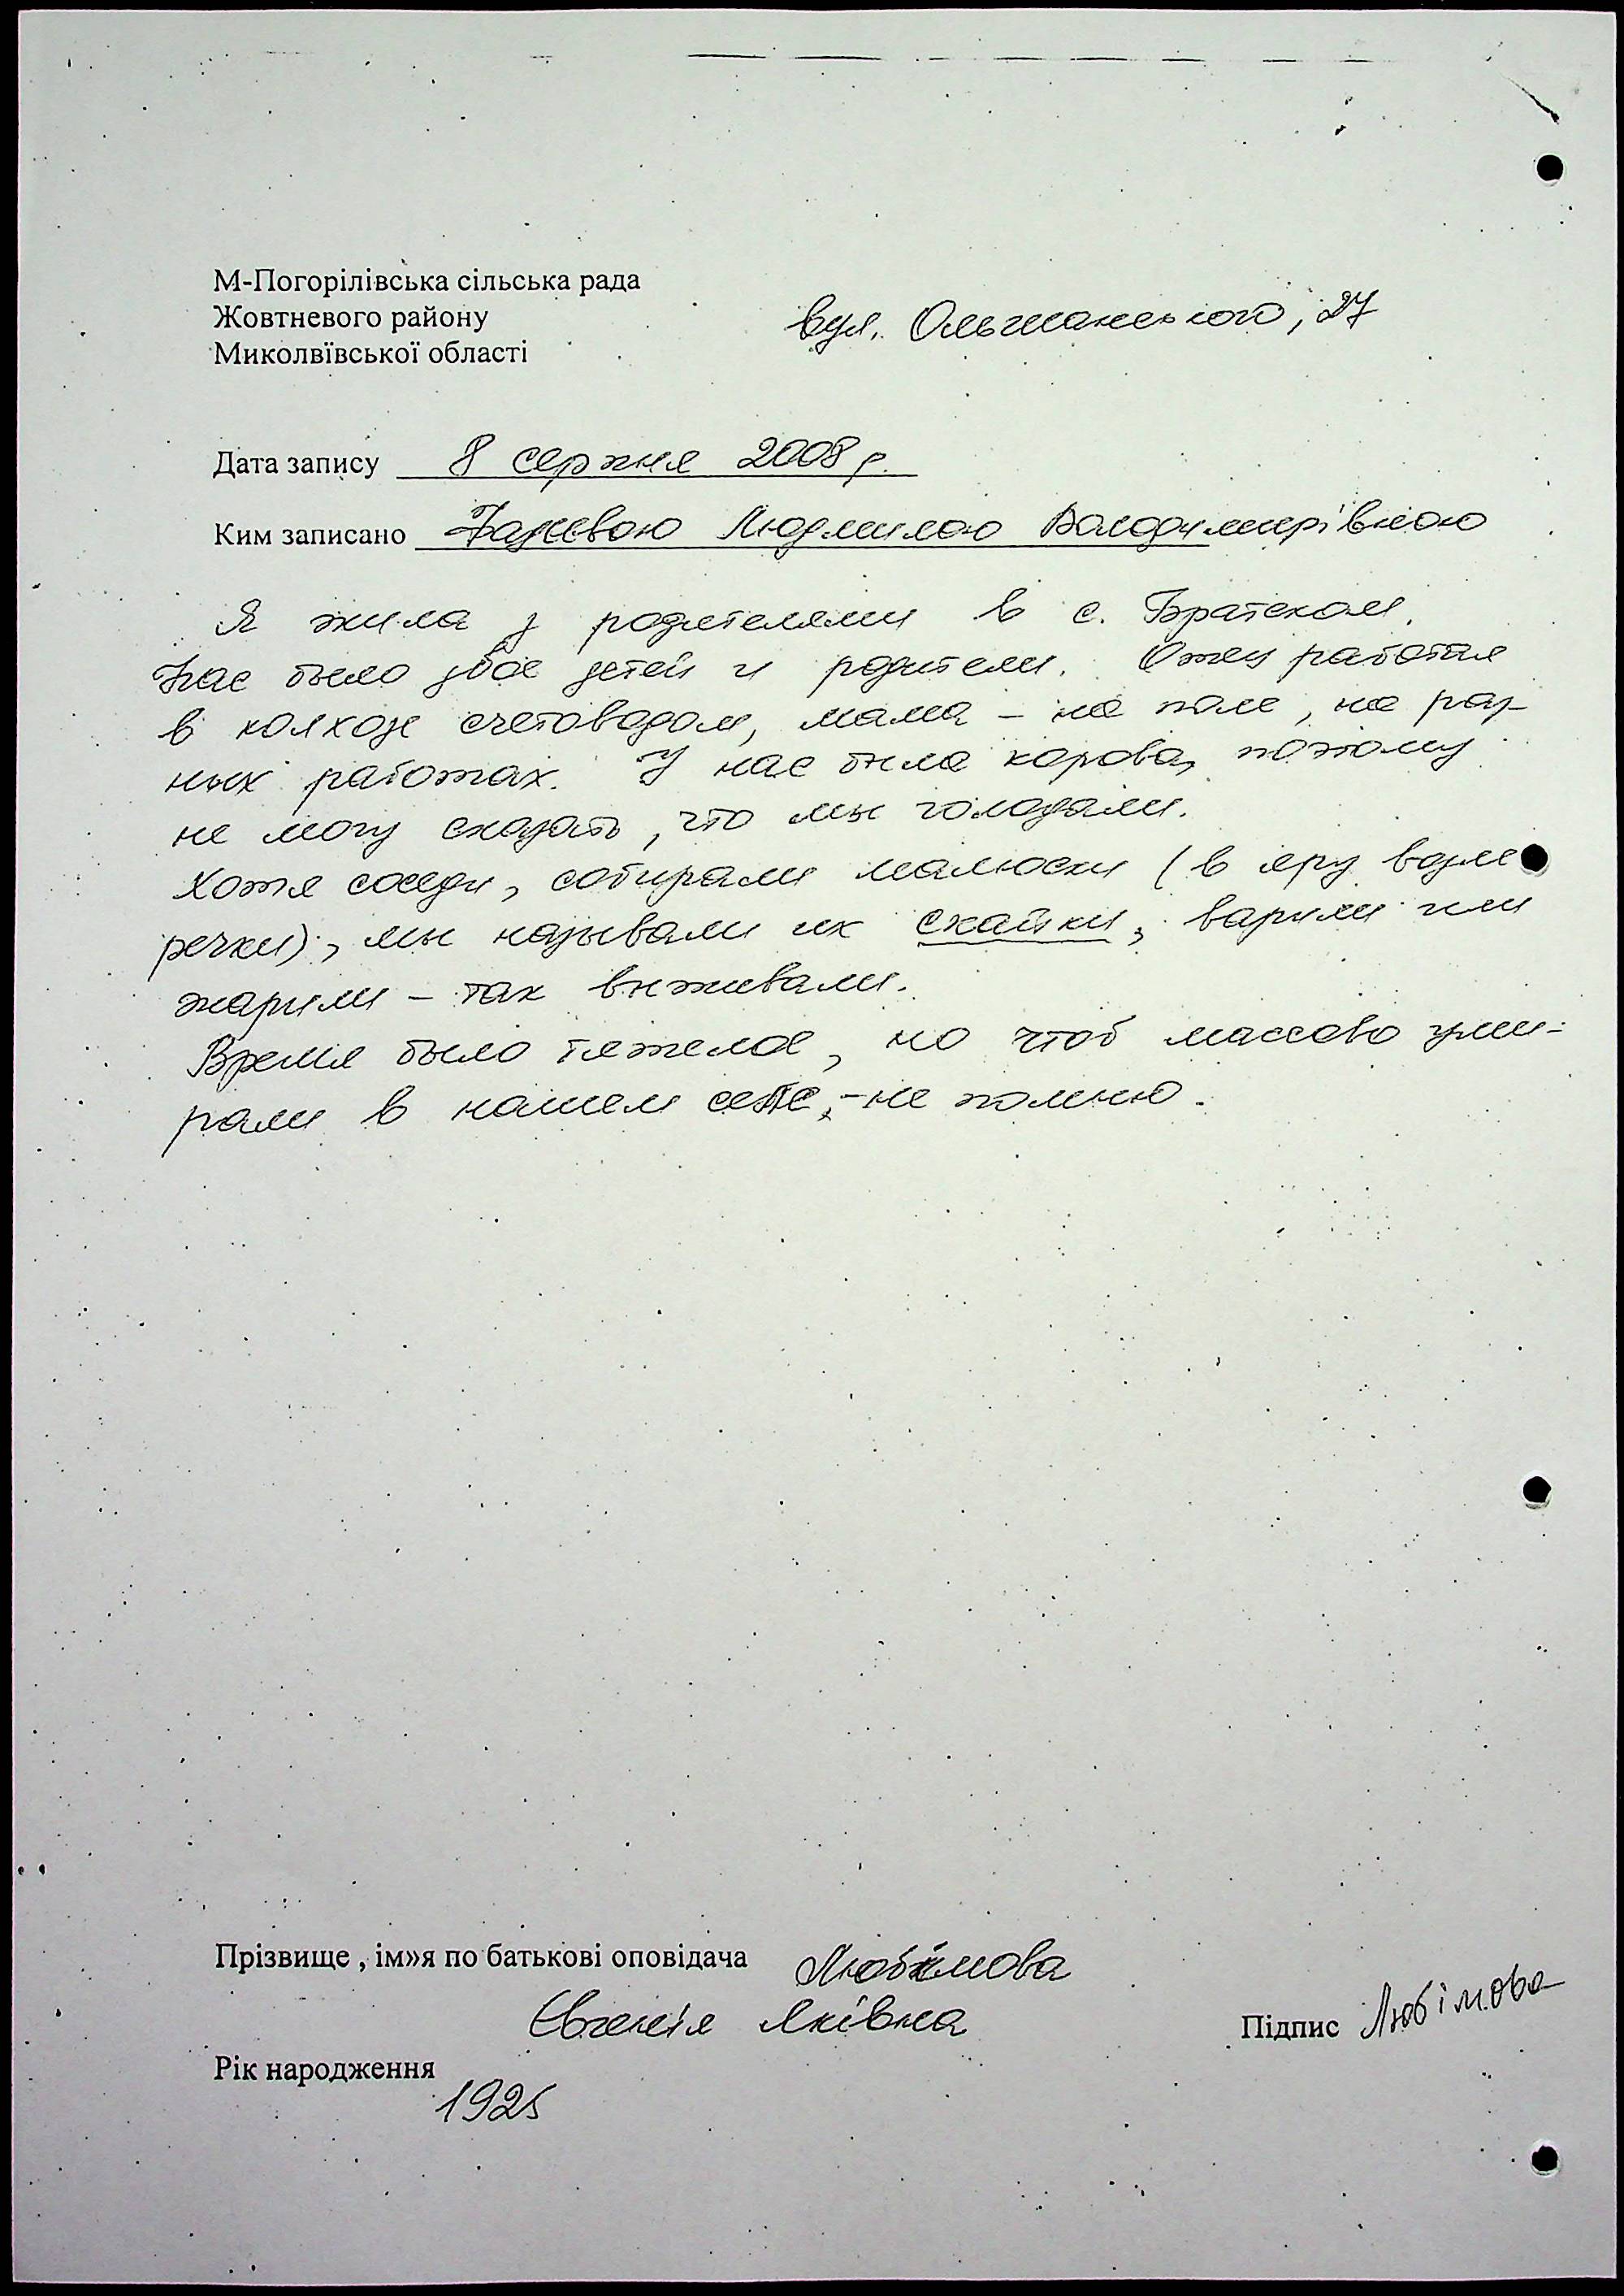 М-Погорілівська сільська рада
Жовтневого району
Миколвївської області
вул. Ольшанського, 27
Дата запису 8 серпня 2008 р.
Ким записано Людмилою Володимирівною
Я жила з родителями в с. Братском.
Нас было двое детей и родители. Отец работал
в колхозе счетоводом, мама – на поле, на раз-
ных работах. У нас была корова, поэтому
не могу сказать, что мы голодали.
Хотя соседи, собирали малюски (в яру возле
речки), мы называли их скайки, варили или
жарили – так выживали.
Время было тяжелое, но чтоб массово уми-
рали в нашем селе, – не помню.
Прізвище , ім»я по батькові оповідача Любімова
Євгенія Яківна
Підпис Любімова
Рік народження
1925